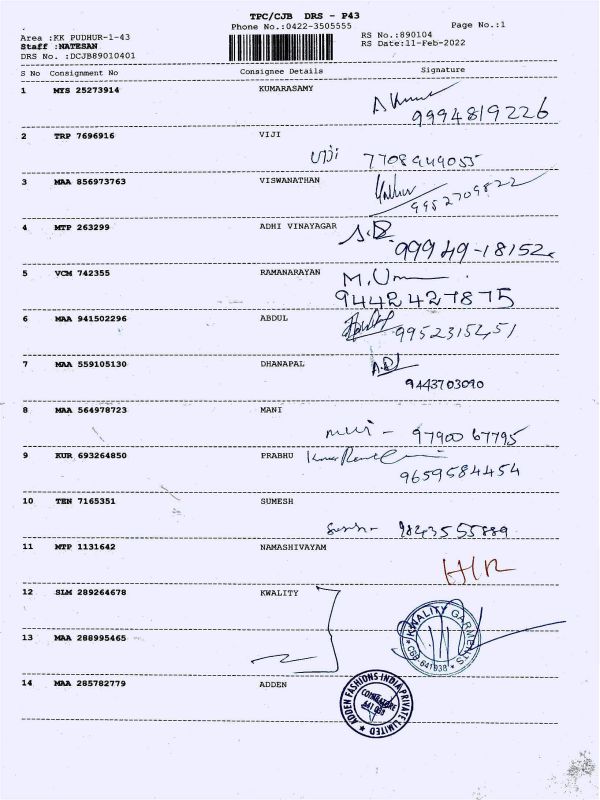 TPC/CJB DRS - P43
Phone No.:0422-3505555
Page No.:1
Area :KK PUDHUR-1-43
Staff :NATESAN
DRS No. :DCJB89010401
RS No.:890104
RS Date:11-Feb-2022
S No Consignment No Consignee Details Signature
1 MTS 25273914 KUMARASAMY
9994819226
2 TRP 7696916 VIJI
Viji 7708949055
3 MAA 856973763 VISWANATHAN
9952709822
4 MTP 263299 ADHI VINAYAGAR
99949-18152
5 VCM 742355 RAMANARAYAN
9442427875
6 MAA 941502296 ABDUL
9952315451
7 MAA 559105130 DHANAPAL
9443703090
8 MAA 564978723 MANI
97900 67795
9 KUR 693264850 PRABHU
9659584454
10 TEN 7165351 SUMESH
9843555889
11 MTP 1131642 NAMASHIVAYAM
H/R
12 SLM 289264678 KWALITY
KWALITY GARMENTS
CBB-641038
13 MAA 288995465
14 MAA 285782779 ADDEN
ADDEN FASHIONS INDIA PRIVATE LIMITED
COIMBATORE